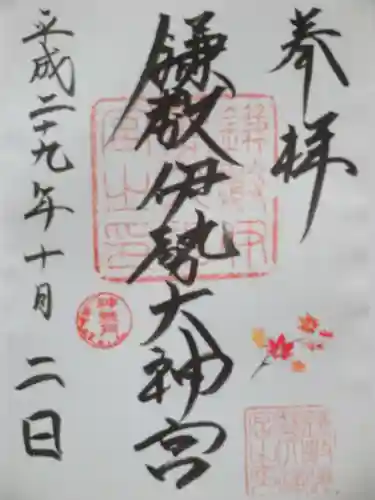 奉拝
鎌数伊勢大神宮
平成二十九年十月二日